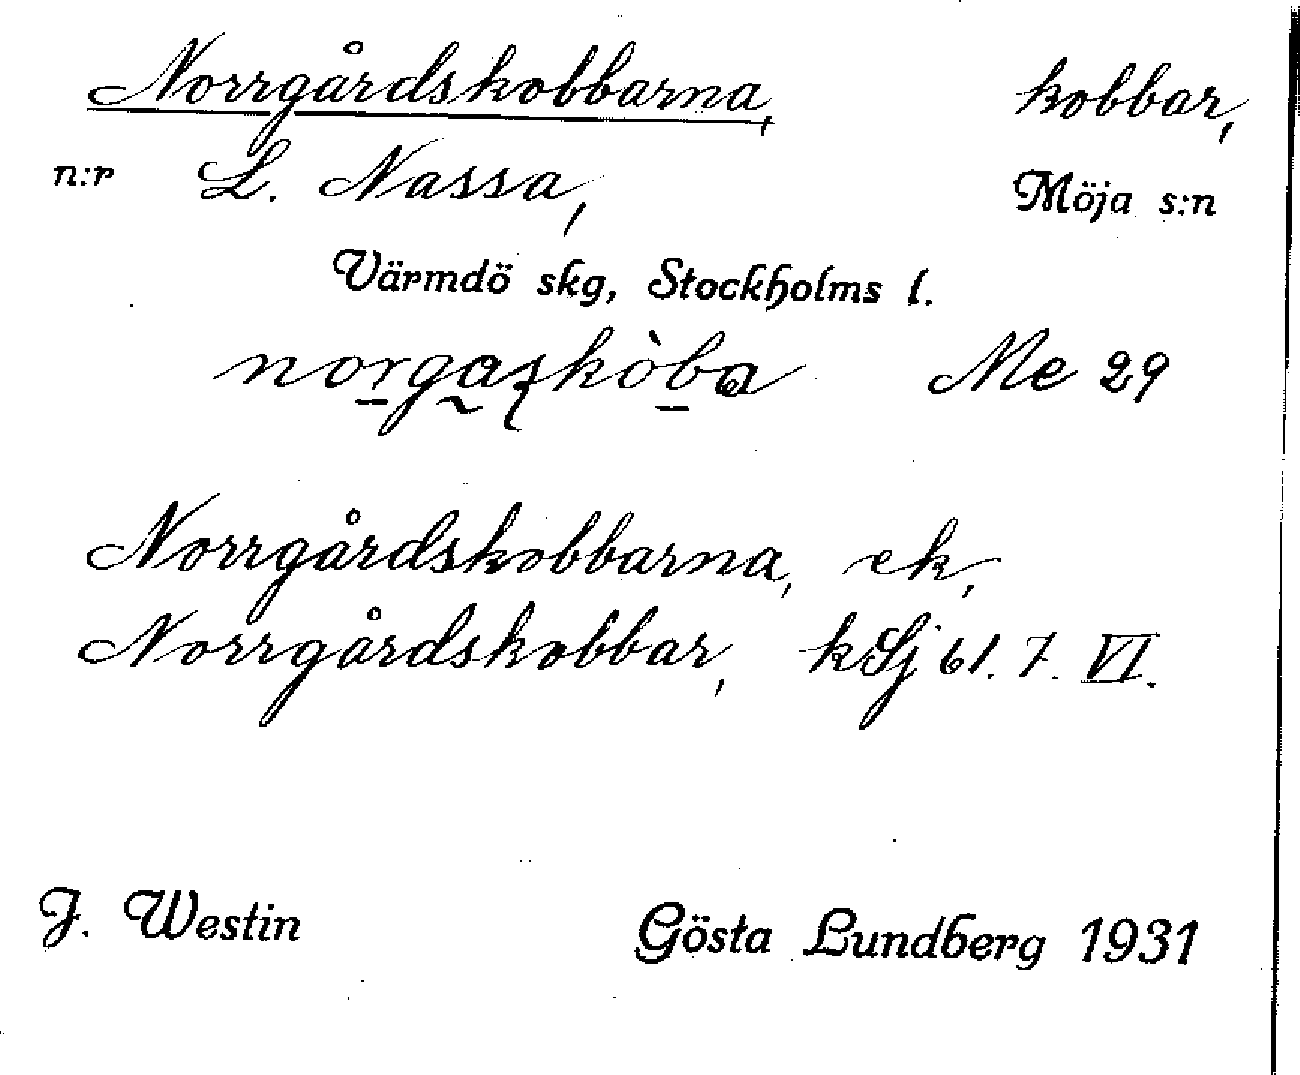 Norrgårdskobbarna, kobbar,
n:r L. Nassa, Möja s:n
Värmdö skg, Stockholms l.
Me 29
Norrgårdskobbarna, ek,
Norrgårdskobbar, kSj 61. 7. VI.
J. Westin Gösta Lundberg 1931